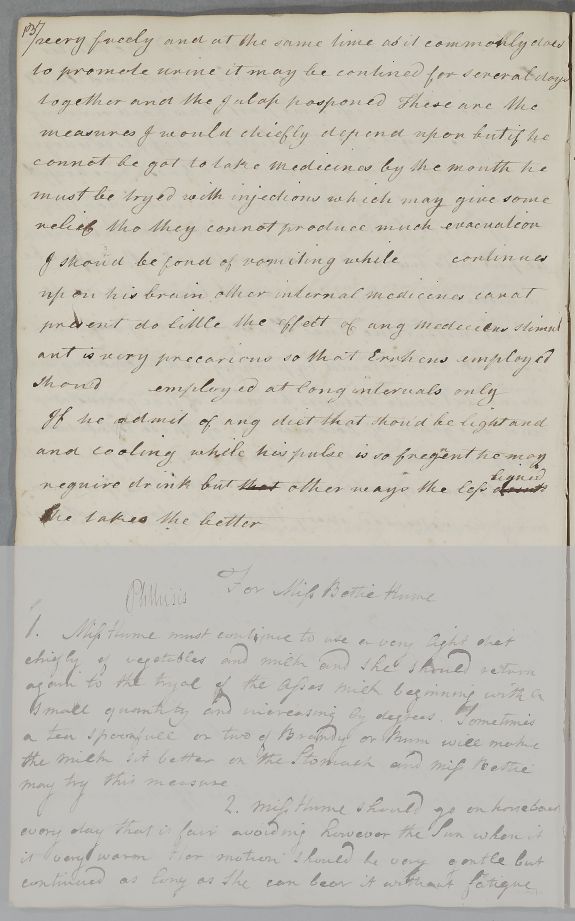 137/
very freely and at the same time as it commonly does
to promote urine it may be contined for several days
together and the Julap posponed These are the
measures I would chiefly depend upon but if he
connot be got to take medicines by the mouth he
must be tryed with injections which may give some
relief tho they cannot produce much evacuation
I should be fond of vomiting while continues
upon his brain other internal medicines can at
present do little the effett of any mediciens stimul
ant is very precarious so that Errhens employed
should employed at long intervals only
If he admit of any diet that should be light and
and cooling while his pulse is so freqent he may
require drink but that other ways the less drink liquid
he takes the better
For Miss Bettie Hume
Phthisis
1. Miss Hume must continue to use a very light diet
chiefly of vegetables and milk and she should return
again to the tryal of the Asses milk beginning with a
small quantity and increasing by degrees. Sometimes
a tea spoonfull or two of Brandy or Rum will make
the milk sit better on the Stomach and Miss Bettie
may try this measure
2. Miss Hume should go on horseback
every day that is fair avoiding however the Sun when it
is very warm Her motion should be very gentle but
continued as long as she can bear it without fatigue